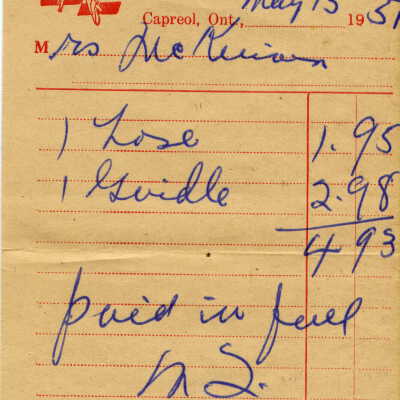 Capreol, Ont., May 15 1951
Mrs McKinnon
1 Hose 1.95
1 Girdle 2.98
4 93
paid in full
M S.